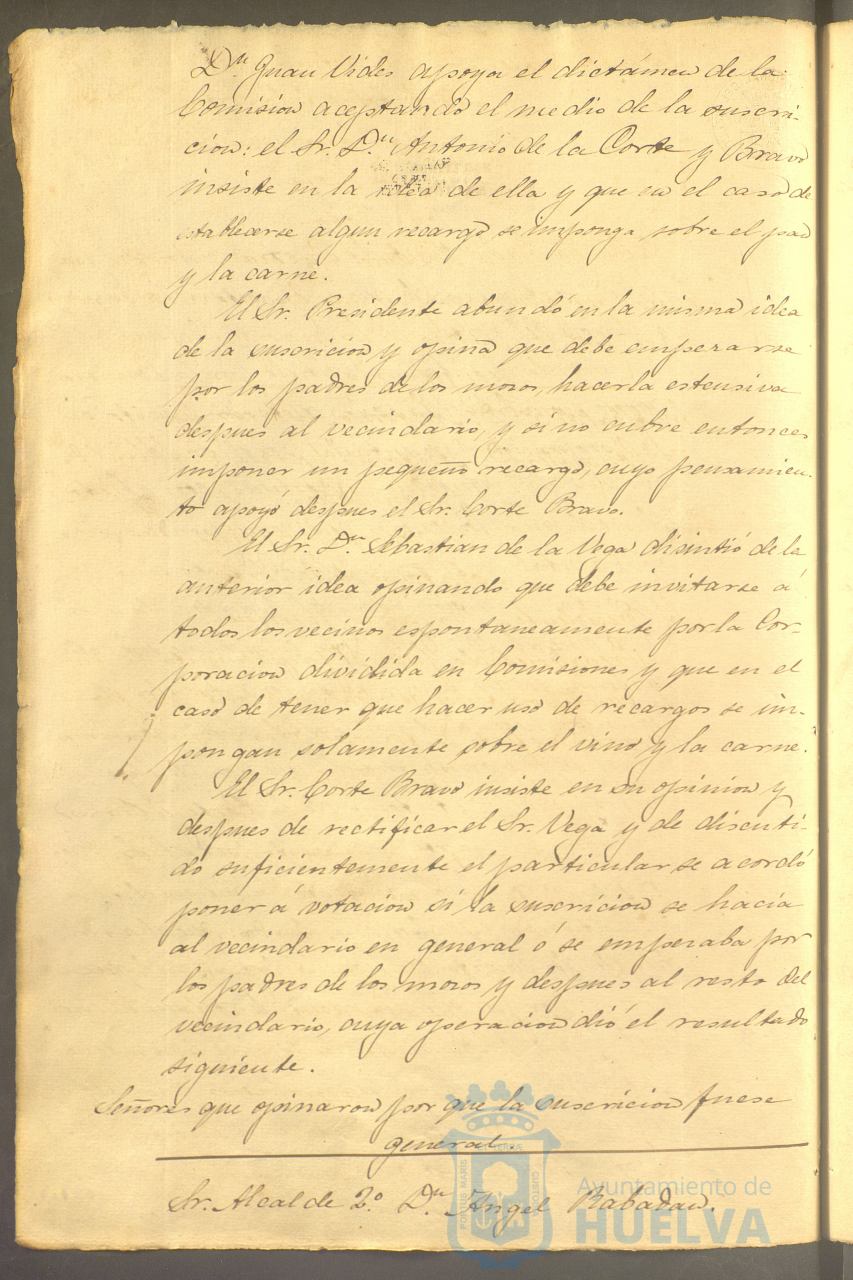 Dn. Juan Vides apoya el dictámen de la
Comision aceptando el medio de la suscri-
cion: el Sr. Dn. Antonio de la Corte y Bravo
insiste en la idea de ella y que en el caso de
establecerse algun recargo se imponga sobre el pan
y la carne.
El Sr. Presidente abundó en la misma idea
de la suscricion y opina que debe empezarse
por los padres de los mozos, hacerla estensiva
despues al vecindario, y si no cubre entonces
imponer un pequeño recargo, cuyo pensamien-
to apoyó despues el Sr. Corte Bravo.
El Sr. Dn. Sebastian de la Vega disintió de la
anterior idea opinando que debe invitarse á
todos los vecinos espontaneamente por la Cor-
poracion dividida en Comisiones y que en el
caso de tener que hacer uso de recargos se im-
pongan solamente sobre el vino y la carne.
El Sr. Corte Bravo insiste en su opinion y
despues de rectificar el Sr. Vega y de discuti-
do suficientemente el particular se acordó
poner á votacion si la suscricion se hacía
al vecindario en general ó se empezaba por
los padres de los mozos y despues al resto del
vecindario, cuya operacion dió el resultado
siguiente.
Señores que opinaron por que la suscricion fuese
general.
Sr. Alcalde 2.º Dn. Angel Rabadan.
Ayuntamiento de
HUELVA